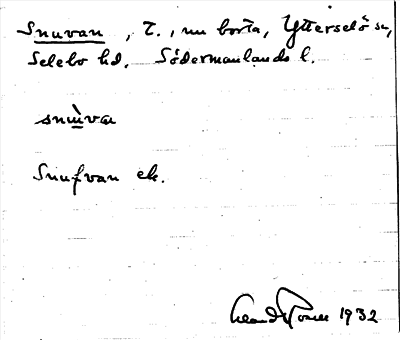 Snuvan, t., nu borta, Ytterselö sn,
Selebo hd. Södermanlands l.
snu̇va
Snufvan ek.
1932